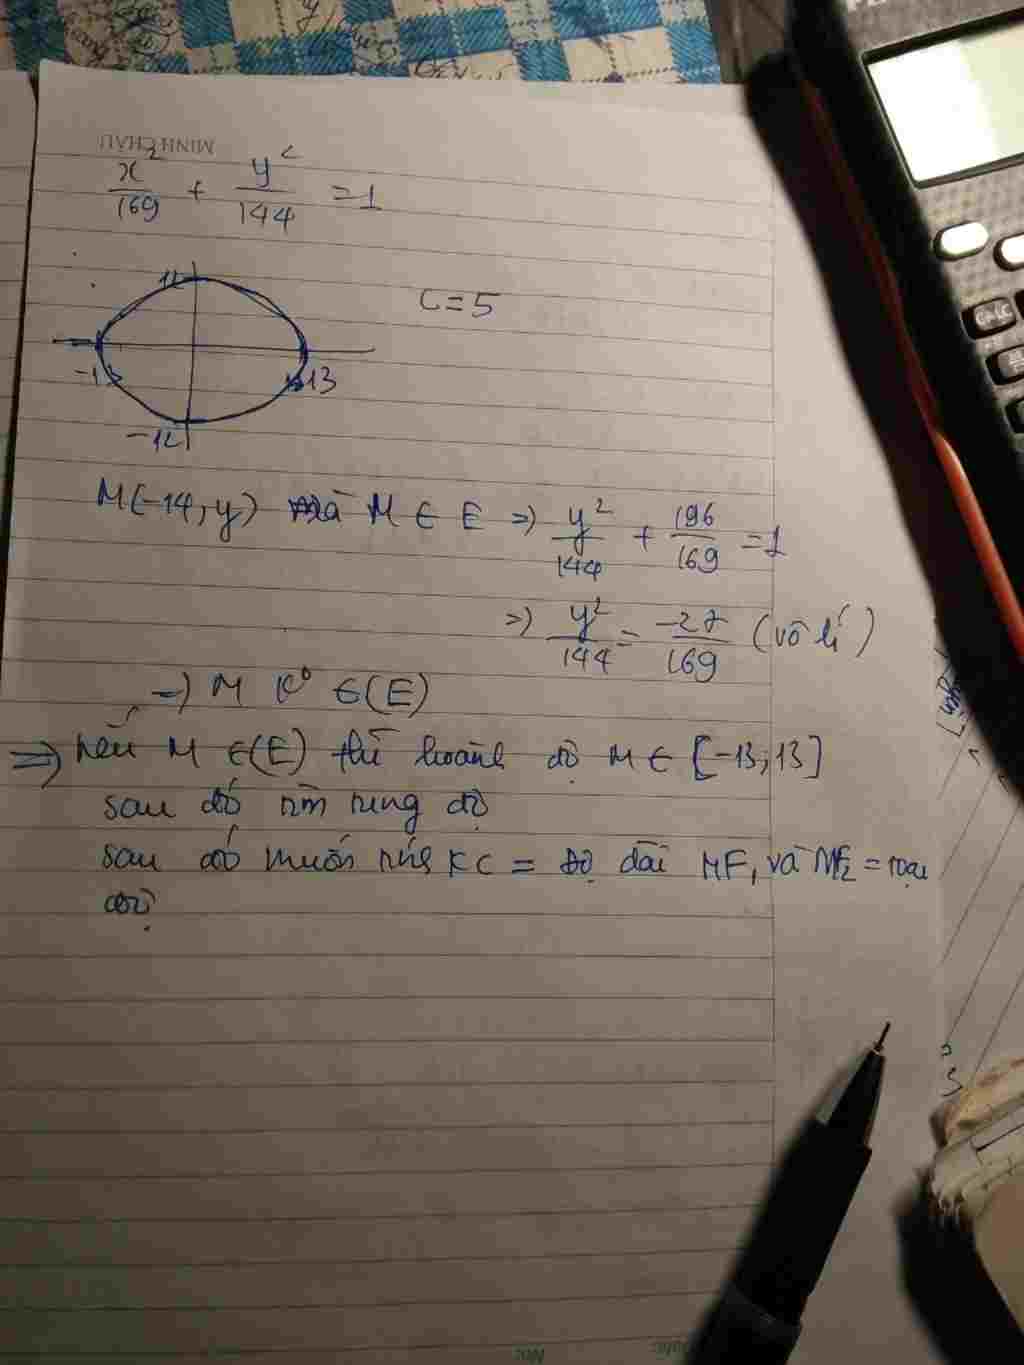 MINH CHÂU
x²/169 + y²/144 = 1
12
C = 5
-13
13
-12
M(-14, y) mà M ∈ E => y²/144 + 196/169 = 1
=> y²/144 = -27/169 (vô lí)
-> M K° ∈ (E)
=> nếu M ∈ (E) thì hoành độ M ∈ [-13; 13]
sau đó tìm tung độ
sau đó muốn tính KC = Độ dài MF₁ và MF₂ = toạ
độ
CALC